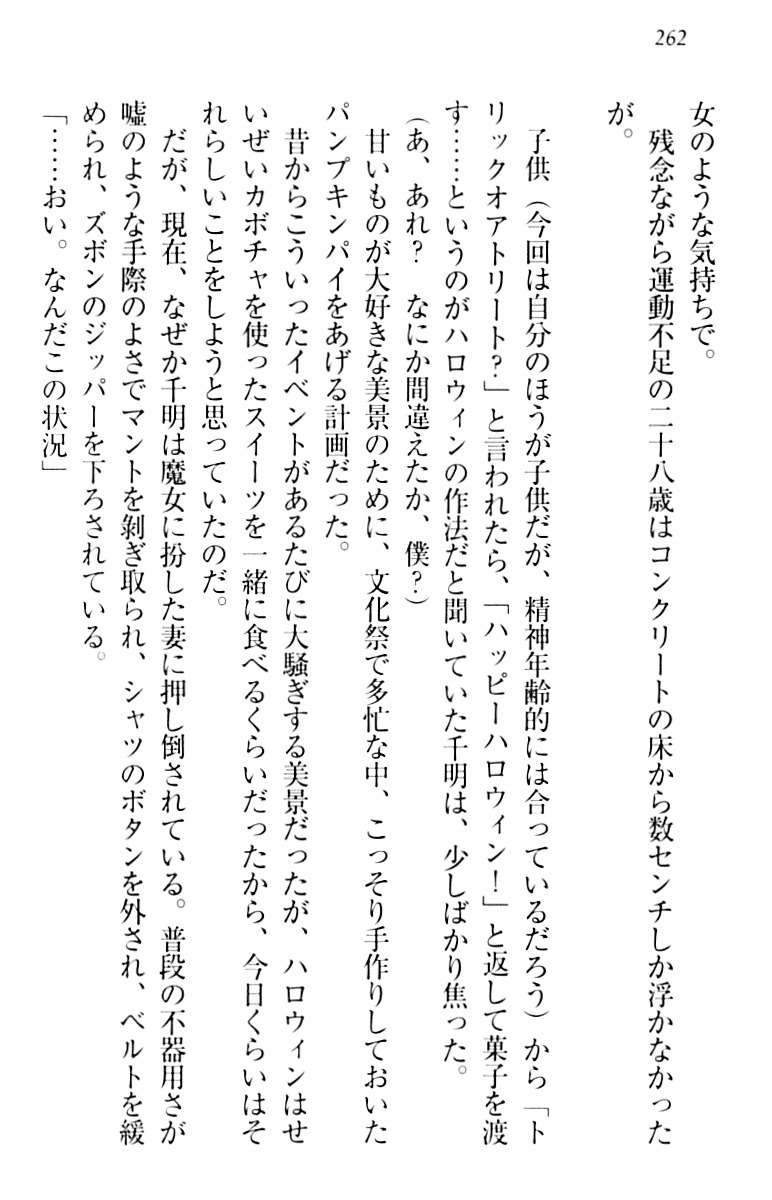 262
女のような気持ちで。
　残念ながら運動不足の二十八歳はコンクリートの床から数センチしか浮かなかった
が。
　子供（今回は自分のほうが子供だが、精神年齢的には合っているだろう）から「ト
リックオアトリート？」と言われたら、「ハッピーハロウィン！」と返して菓子を渡
す……というのがハロウィンの作法だと聞いていた千明は、少しばかり焦った。
（あ、あれ？　なにか間違えたか、僕？）
　甘いものが大好きな美景のために、文化祭で多忙な中、こっそり手作りしておいた
パンプキンパイをあげる計画だった。
　昔からこういったイベントがあるたびに大騒ぎする美景だったが、ハロウィンはせ
いぜいカボチャを使ったスイーツを一緒に食べるくらいだったから、今日くらいはそ
れらしいことをしようと思っていたのだ。
　だが、現在、なぜか千明は魔女に扮した妻に押し倒されている。普段の不器用さが
嘘のような手際のよさでマントを剝ぎ取られ、シャツのボタンを外され、ベルトを緩
められ、ズボンのジッパーを下ろされている。
「……おい。なんだこの状況」